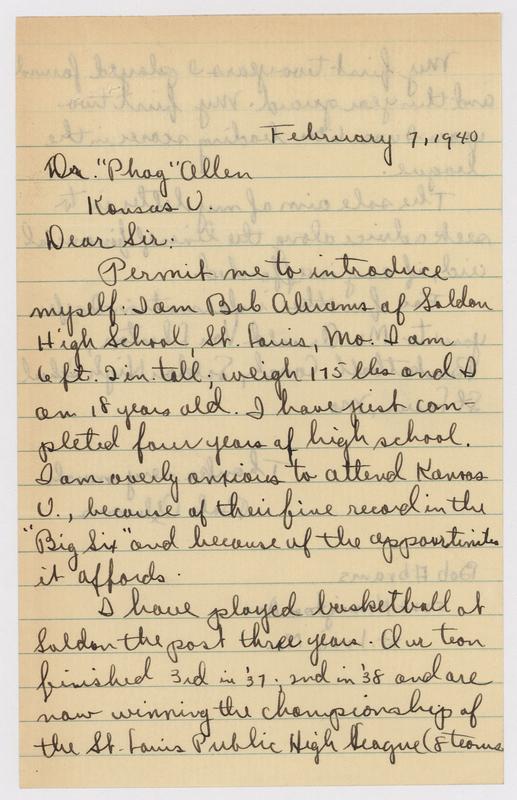 February 7, 1940
Dr. "Phog" Allen
Kansas U.
Dear Sir:
Permit me to introduce
myself. I am Bob Abrams of Soldan
High School, St. Louis, Mo. I am
6 ft. 2 in. tall; weigh 175 lbs and I
am 18 years old. I have just com-
pleted four years of high school.
I am overly anxious to attend Kansas
U., because of their fine record in the
"Big Six" and because of the opportunities
it affords.
I have played basketball at
Soldan the past three years. Our team
finished 3rd in '37; 2nd in '38 and are
now winning the championship of
the St. Louis Public High League (8 teams